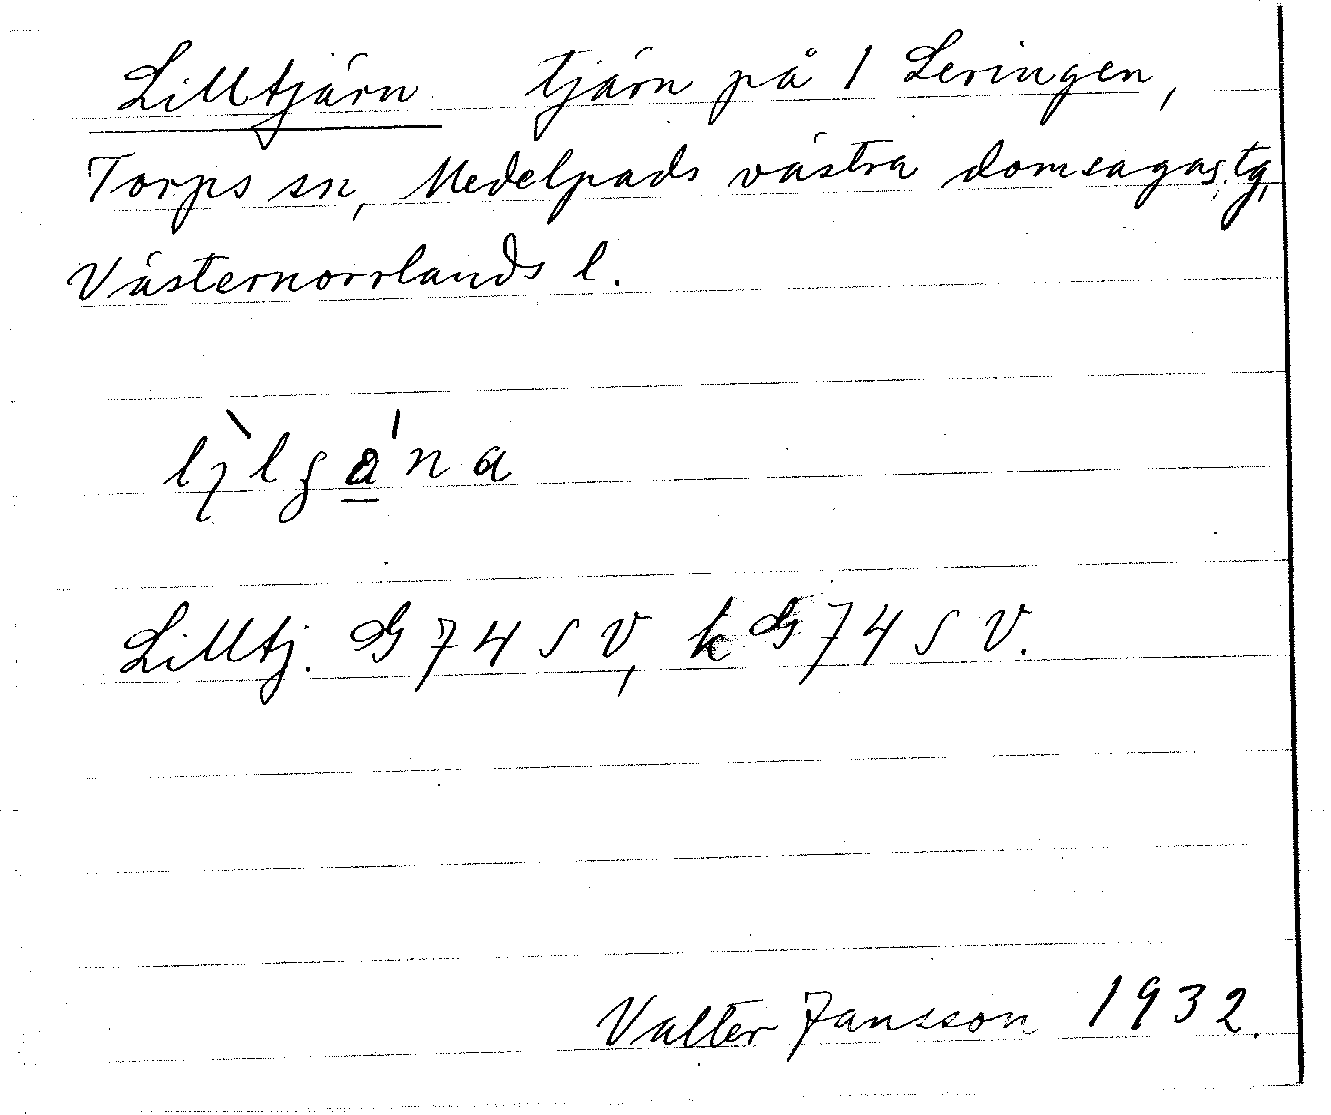 Lilltjärn tjärn på 1 Leringen,
Torps sn, Medelpads västra domsagas tg,
Västernorrlands l.
Lilltj. G 74 S V, k G 74 S V.
Valter Jansson 1932.